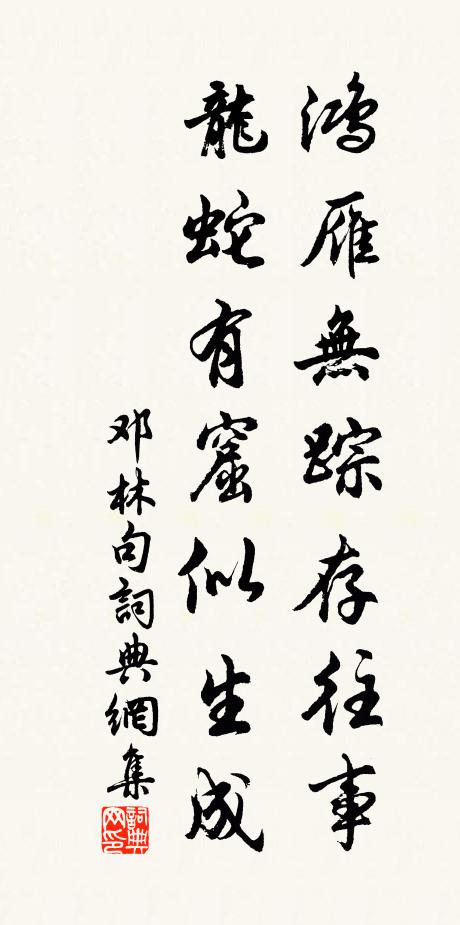 鴻雁無踪存往事
龍蛇有窟似生成
邓林句詞典網集
詞典网印